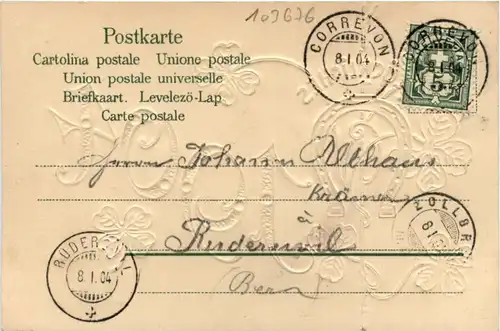 103676
Postkarte
Cartolina postale Unione postale
Union postale universelle
Briefkaart. Levelezö-Lap.
Carte postale
CORREVON
8.I.04
CORREVON
Herrn Johann Althaus
Krämer
Ruderswil
(Bern)
ZOLLBR
8.I.04
RUDER
8.I.04